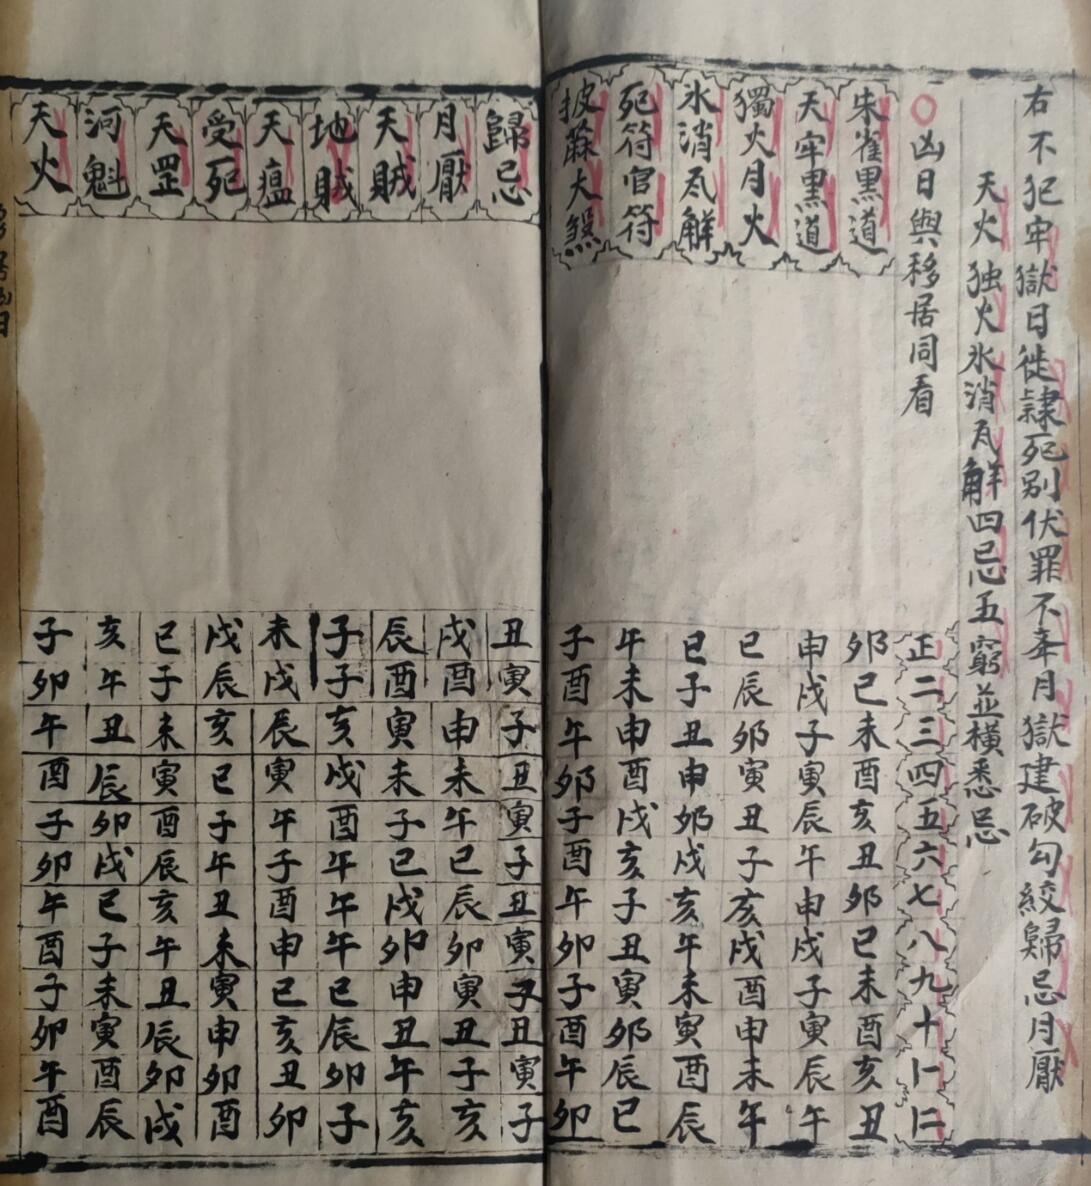 右不犯牢獄日徙隸死别伏罪不奉月獄建破勾絞歸忌月厭
天火独火氷消瓦解四忌五窮並横悉忌
○凶日與移居同看 正二三四五六七八九十十一十二
朱雀黒道 卯巳未酉亥丑卯巳未酉亥丑
天牢黒道 申戌子寅辰午申戌子寅辰午
獨火月火 巳辰卯寅丑子亥戌酉申未午
氷消瓦解 巳子丑申卯戌亥午未寅酉辰
死符官符 午未申酉戌亥子丑寅卯辰巳
披蔴大煞 子酉午卯子酉午卯子酉午卯
歸忌 丑寅子丑寅子丑寅子丑寅子
月厭 戌酉申未午巳辰卯寅丑子亥
天賊 辰酉寅未子巳戌卯申丑午亥
地賊 子子亥戌酉午午午巳辰卯子
天瘟 未戌辰寅午子酉申巳亥丑卯
受死 戌辰亥巳子午丑未寅申卯酉
天罡 巳子未寅酉辰亥午丑辰卯戌
河魁 亥午丑辰卯戌巳子未寅酉辰
天火 子卯午酉子卯午酉子卯午酉